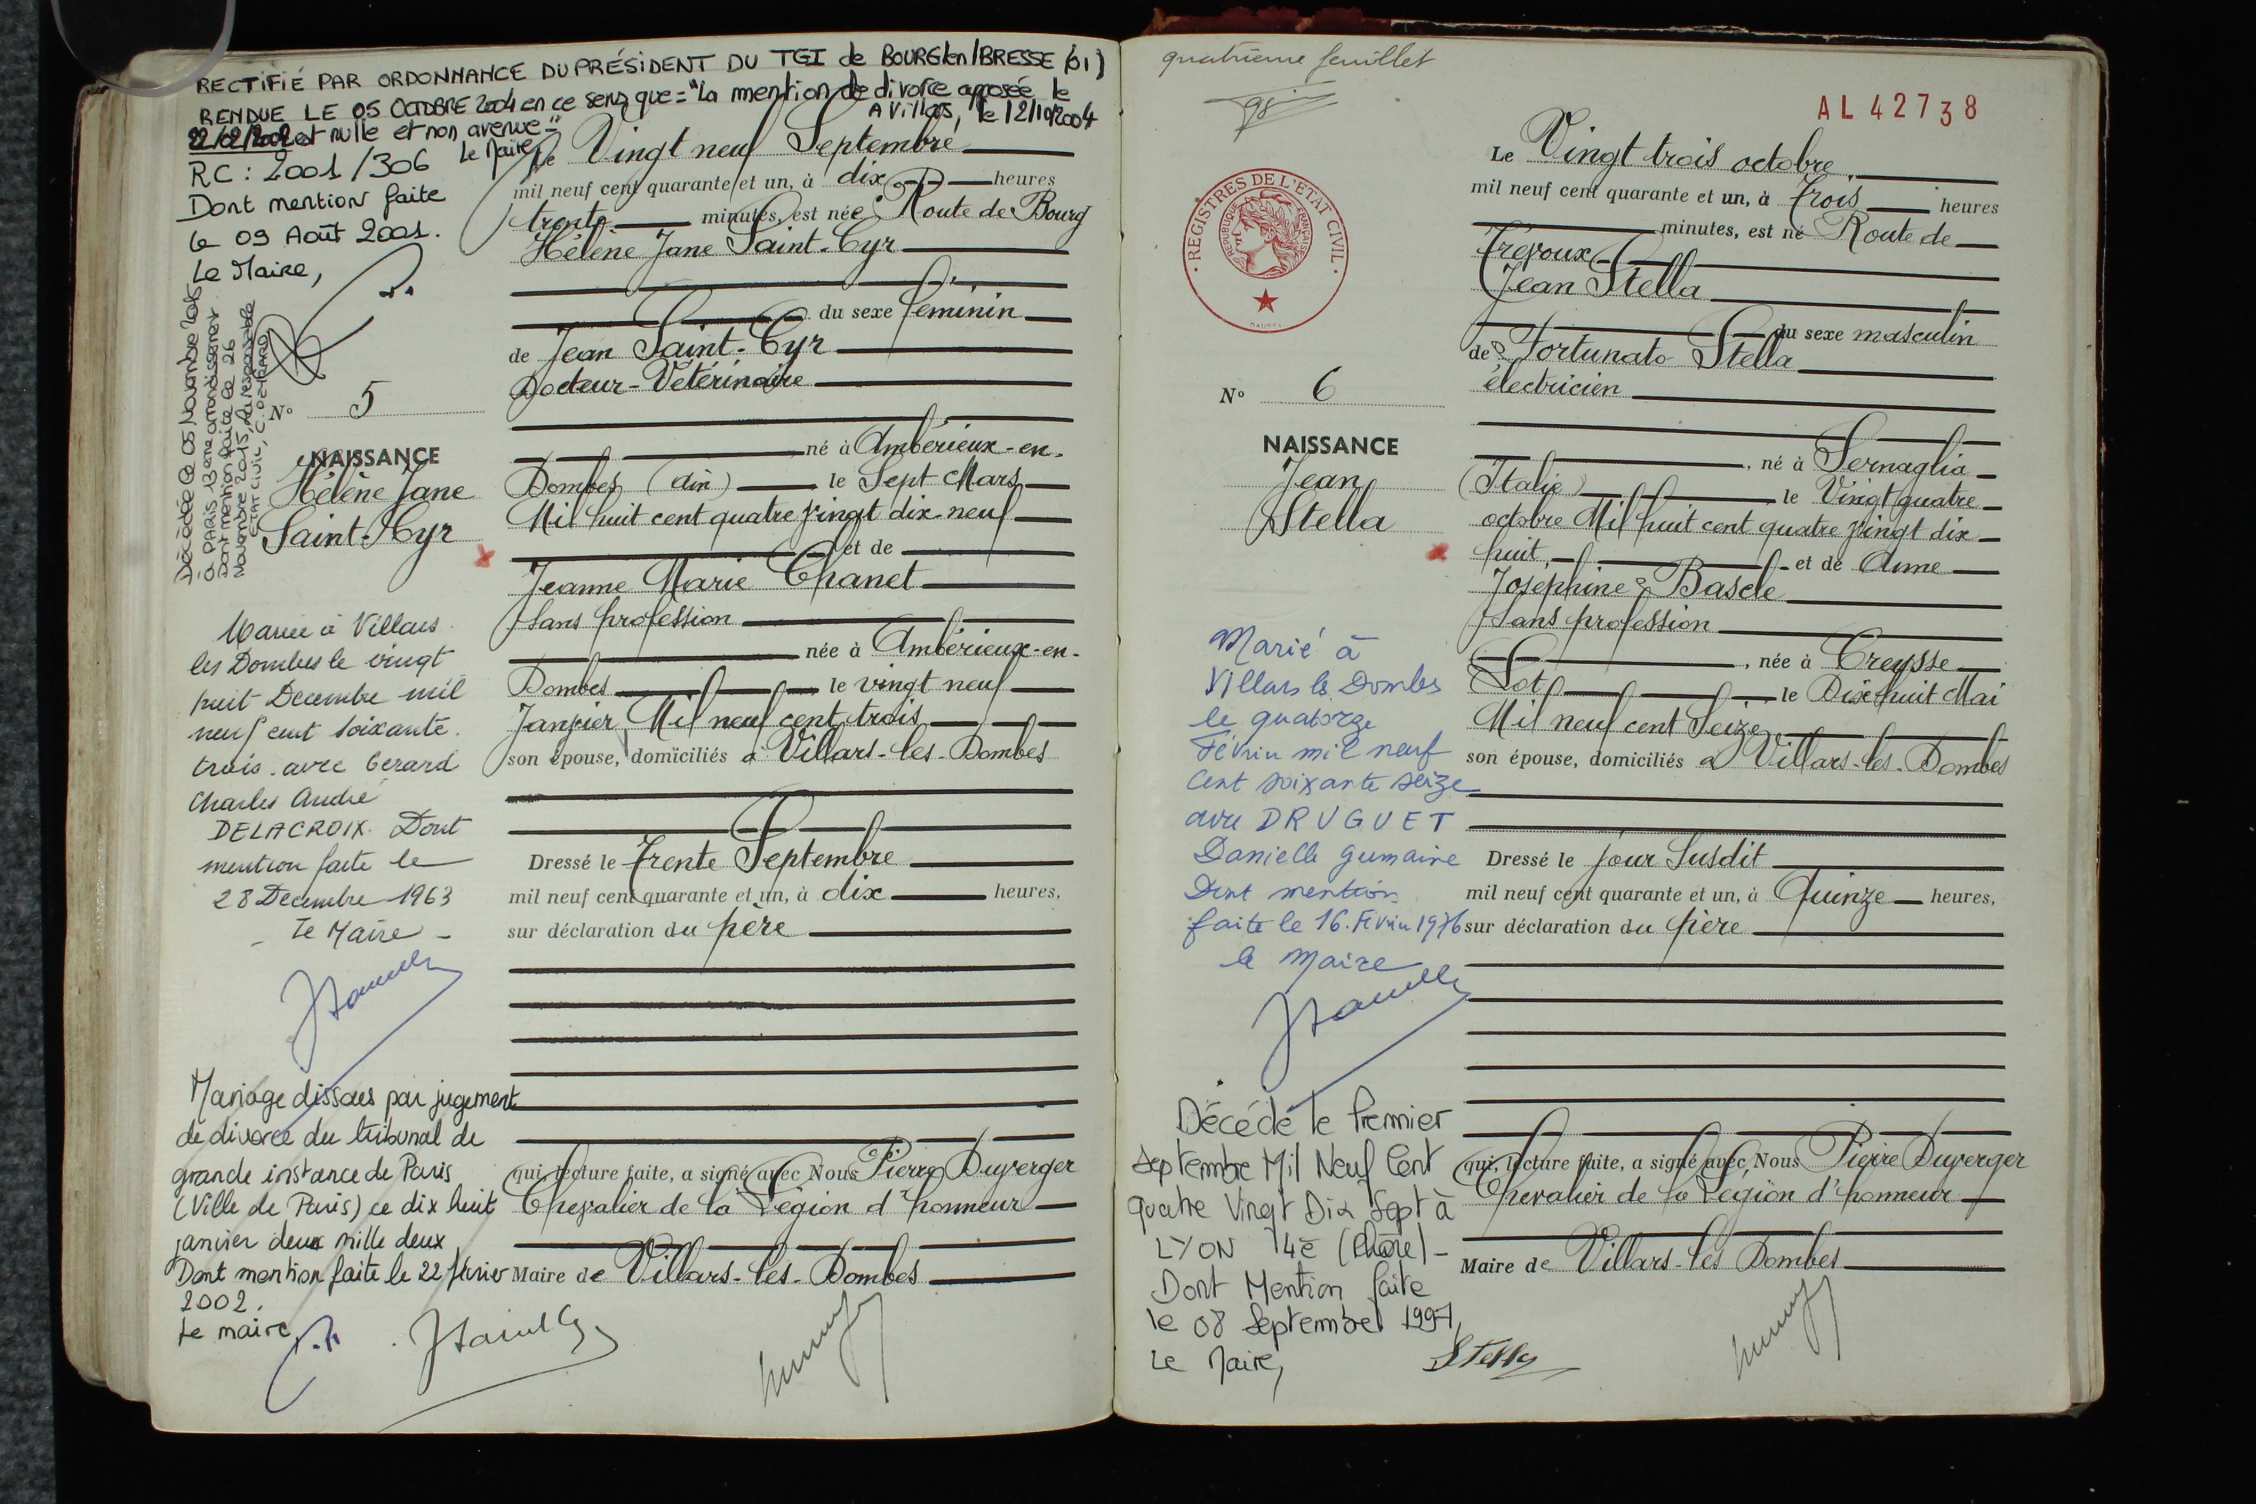 RECTIFIÉ PAR ORDONNANCE DU PRÉSIDENT DU TGI de BOURG/en/BRESSE (01)
RENDUE LE 05 OCTOBRE 2004 en ce sens que = "La mention de divorce apposée le
22/02/2002 est nulle et non avenue ="
A Villars, le 12/10/2004
Le Maire
RC : 2001/306
Dont mention faite
le 09 Août 2001.
Le Maire,
Décédée le 05 Novembre 2015
à PARIS 13 ème arrondissement
Dont mention faite le 26
Novembre 2015, La responsable
ETAT CIVIL,
N° 5
NAISSANCE
Hélène Jane
Saint-Cyr
Mariée à Villars
les Dombes le vingt
huit Decembre mil
neuf cent soixante
trois avec Gerard
Charles André
DELACROIX. Dont
mention faite le
28 Decembre 1963
Le Maire
Mariage dissous par jugement
de divorce du tribunal de
grande instance de Paris
(Ville de Paris) ce dix huit
janvier deux mille deux
Dont mention faite le 22 février
2002.
Le maire
Le Vingt neuf Septembre
mil neuf cent quarante et un, à dix heures
trente minutes, est née Route de Bourg
Hélène Jane Saint-Cyr
du sexe féminin
de Jean Saint-Cyr
Docteur-Vétérinaire
né à Ambérieux-en-
Dombes (Ain) le Sept Mars
Mil huit cent quatre vingt dix-neuf
et de
Jeanne Marie Chanet
Sans profession
née à Ambérieux-en-
Dombes le vingt neuf
Janvier Mil neuf cent trois
son épouse, domiciliés à Villars-les-Dombes
Dressé le Trente Septembre
mil neuf cent quarante et un, à dix heures,
sur déclaration du père
qui, lecture faite, a signé avec Nous Pierre Duverger
Chevalier de la Légion d'honneur
Maire de Villars-les-Dombes
quatrième feuillet
AL 42738
REGISTRES DE L'ETAT CIVIL
REPUBLIQUE FRANÇAISE
N° 6
NAISSANCE
Jean
Stella
Marié à
Villars les Dombes
le quatorze
Février mil neuf
cent soixante seize
avec DRUGUET
Danielle Germaine
Dont mention
faite le 16 Février 1976
le Maire
Décédé le Premier
Septembre Mil Neuf Cent
Quatre Vingt Dix Sept à
LYON 4è (Rhône)
Dont Mention faite
le 08 Septembre 1997,
Le Maire,
Le Vingt trois octobre
mil neuf cent quarante et un, à Trois heures
minutes, est né Route de
Trévoux
Jean Stella
du sexe masculin
de Fortunato Stella
électricien
né à Sernaglia
(Italie) le Vingt quatre
octobre Mil huit cent quatre vingt dix
huit et de Anne
Joséphine Bascle
Sans profession
, née à Creysse
Lot le Dix huit Mai
Mil neuf cent Seize
son épouse, domiciliés à Villars-les-Dombes
Dressé le jour Susdit
mil neuf cent quarante et un, à Quinze heures,
sur déclaration du père
qui, lecture faite, a signé avec Nous Pierre Duverger
Chevalier de la Légion d'honneur
Maire de Villars-les Dombes
Stella